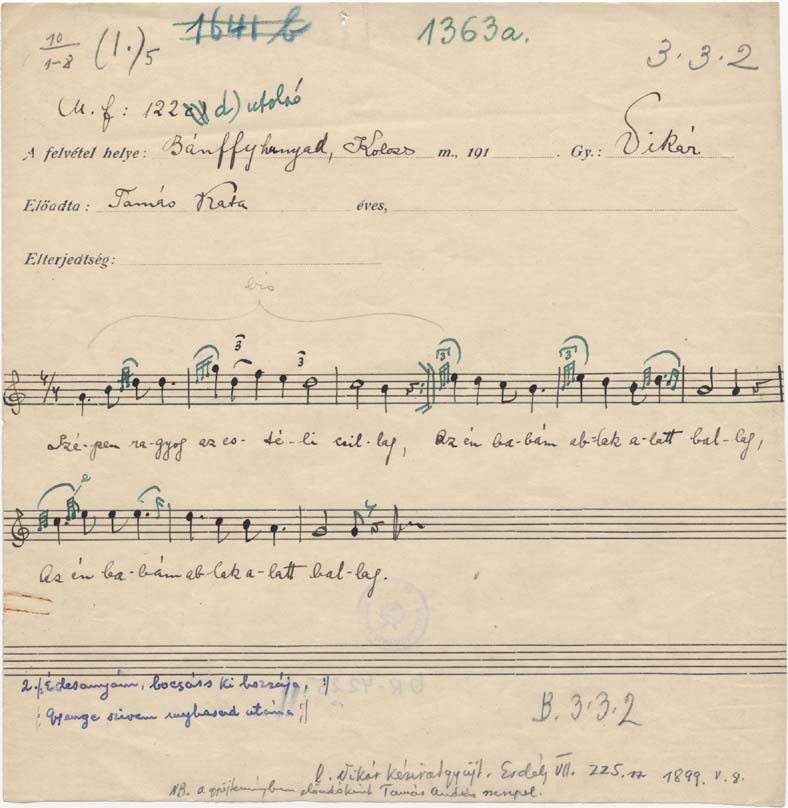 10/1-8 (1.)5 1641/b 1363a. 3.3.2
M. f: 122 d) utolsó
A felvétel helye: Bánffyhunyad, Kolozs m., 191 . Gy.: Vikár
Előadta: Tamás Kata éves,
Elterjedtség:
bis
3 3 3 3
4/4
Szé-pen ra-gyog az es-té-li csil-lag, Az én ba-bám ab-lak a-latt bal-lag,
Az én ba-bám ab-lak a-latt bal-lag.
2. |: Édesanyám, bocsáss ki hozzája, :|
|: Gyenge szivem meghasad utána :|
B. 3.3.2
l. Vikár kéziratgyűjt. Erdély VII. 225. 1899. V. 8.
NB. a gyűjteményben előadóként Tamás András szerepel.